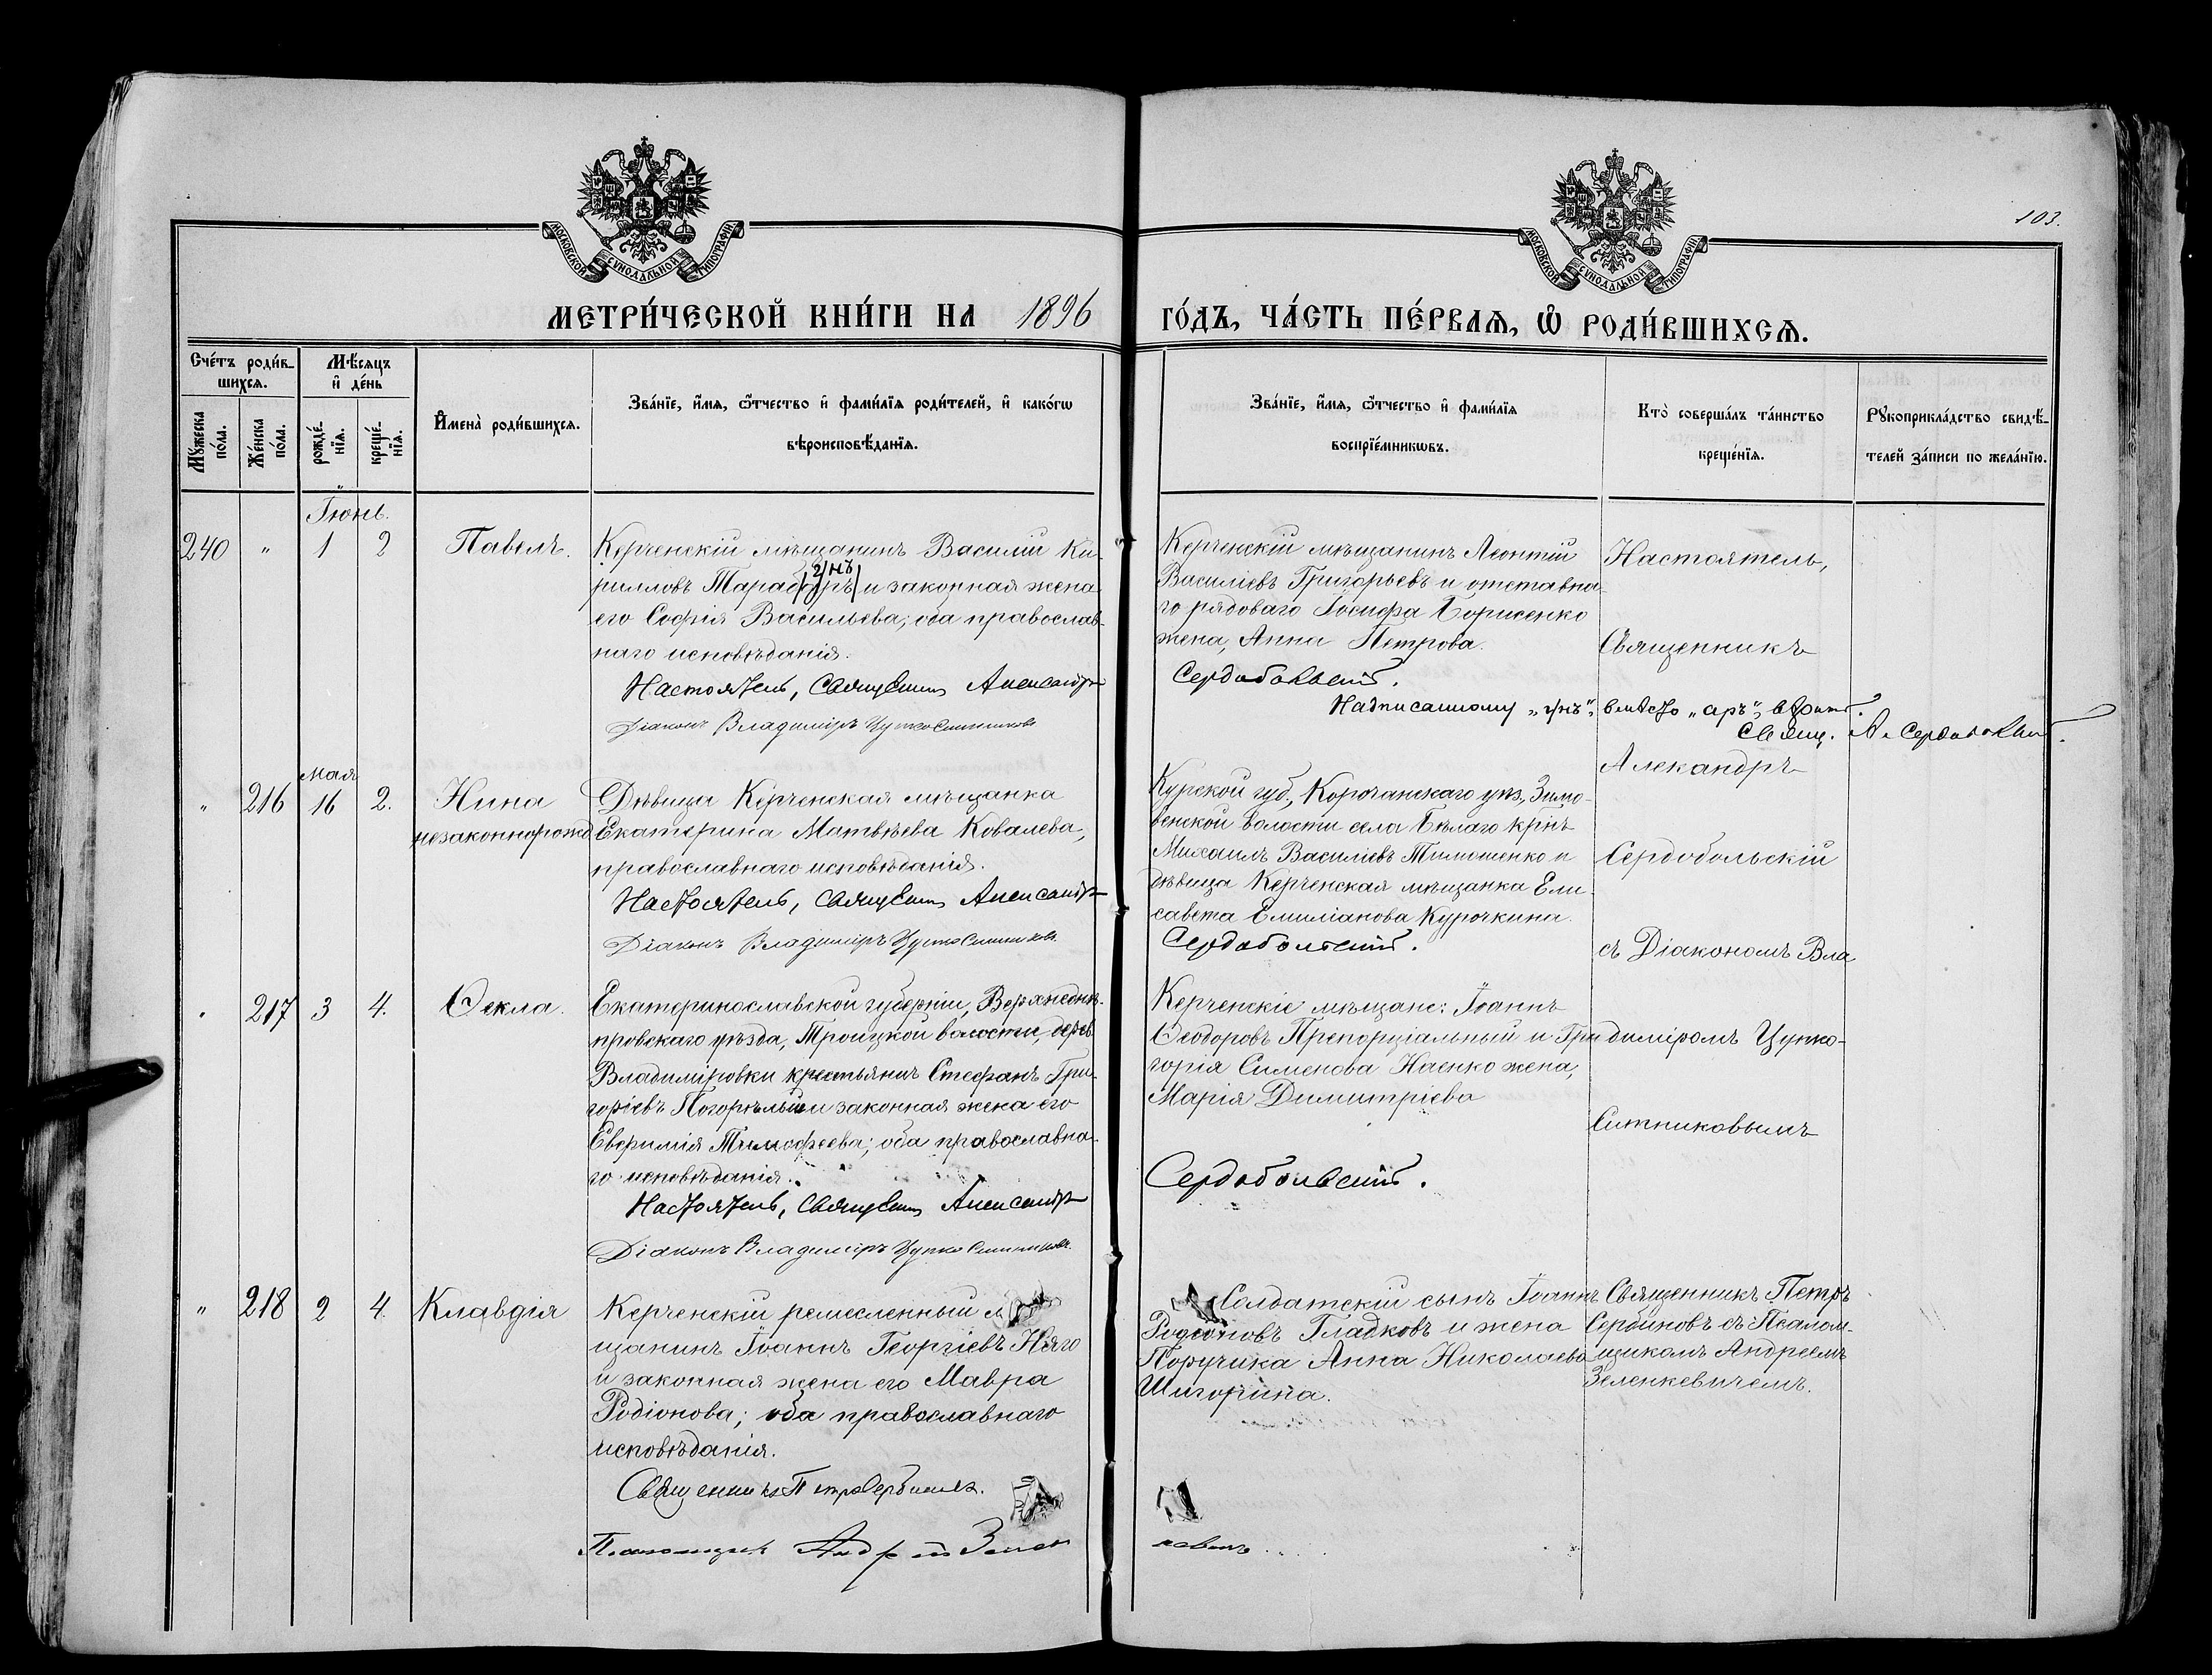 103.
МОСКОВСКОЙ СУНОДАЛЬНОЙ ТИПОГРАФІИ
МОСКОВСКОЙ СУНОДАЛЬНОЙ ТИПОГРАФІИ
МЕТРИ́ЧЕСКОЙ КНИ́ГИ НА 1896
ГО́ДЪ, ЧА́СТЬ ПЕ́РВАѦ, Ѡ҆ РОДИ́ВШИХСѦ.
Сче́тъ роди́в-
шихсѧ.
Мѣ́сѧцъ
и҆ де́нь
Мꙋ́жеска
по́ла.
Же́нска
по́ла.
рожде́-
нїѧ.
креще́-
нїѧ.
И҆мена̀ роди́вшихсѧ.
Зва́нїе, и҆́мѧ, ѻ҆́тчество и҆ фами́лїѧ роди́телей, и҆ како́гѡ
вѣроисповѣ́данїѧ.
Зва́нїе, и҆́мѧ, ѻ҆́тчество и҆ фами́лїѧ
воспрїе́мникѡвъ.
Кто̀ соверша́лъ та́инство
креще́нїѧ.
Рꙋкоприкла́дство свидѣ́-
телей за́писи по жела́нїю.
Іюнь.
240 " 1 2 Павелъ.
Керченскій мѣщанинъ Василій Ки-
рилловъ Тарабаръ и законная жена
гнъ
его Софія Васильева; оба православ-
наго исповѣданія.
Настоятель, Священникъ Александръ
Діаконъ Владиміръ Цупко Ситниковъ
Керченскій мѣщанинъ Леонтій
Василіевъ Григорьевъ и отставна-
го рядоваго Іосифа Борисенко
жена, Анна Петрова.
Сердобольскій.
Надписанному „гнъ", вмѣсто „аръ", вѣрить.
Свящ. А. Сердобольскій.
Настоятель,
Священникъ
Александръ
Сердобольскій
съ Діакономъ Вла
диміромъ Цупко-
Ситниковымъ
мая
" 216 16 2. Нина
незаконнорожд
Дѣвица Керченская мѣщанка
Екатерина Матвѣева Ковалева,
православнаго исповѣданія.
Настоятель, Священникъ Александръ
Діаконъ Владиміръ Цупко Ситниковъ.
Курской губ., Корочанскаго уѣз., Зимо-
венской волости села Бѣлаго крнъ
Михаилъ Василіевъ Тимошенко и
дѣвица Керченская мѣщанка Ели-
савета Емиліанова Курочкина.
Сердобольскій.
" 217 3 4. Ѳекла.
Екатеринославской губерніи, Верхнеднѣ-
провскаго уѣзда, Троицкой волости, дерев.
Владиміровки крестьянинъ Стефанъ Гри-
горіевъ Погорѣлый и законная жена его
Евфимія Тимофеева; оба православна-
го исповѣданія.
Настоятель, Священникъ Александръ
Діаконъ Владиміръ Цупко Ситниковъ.
Керченскіе мѣщане: Іоаннъ
Ѳеодоровъ Препорціальный и Гри
горія Сименова Наенко жена,
Марія Димитріева
Сердобольскій.
" 218 2 4. Клавдія
Керченскій ремесленный м
щанинъ Іоаннъ Георгіевъ Няго
и законная жена его Мавра
Родіонова; оба православнаго
исповѣданія.
Священникъ Петръ Сербиновъ.
Псаломщикъ Андрей Зелен
кевичъ
Солдатскій сынъ Іоаннъ
Родіоновъ Гладковъ и жена
Поручика Анна Николаева
Шигорина.
Священникъ Петръ
Сербиновъ съ Псалом-
щикомъ Андреемъ
Зеленкевичемъ.